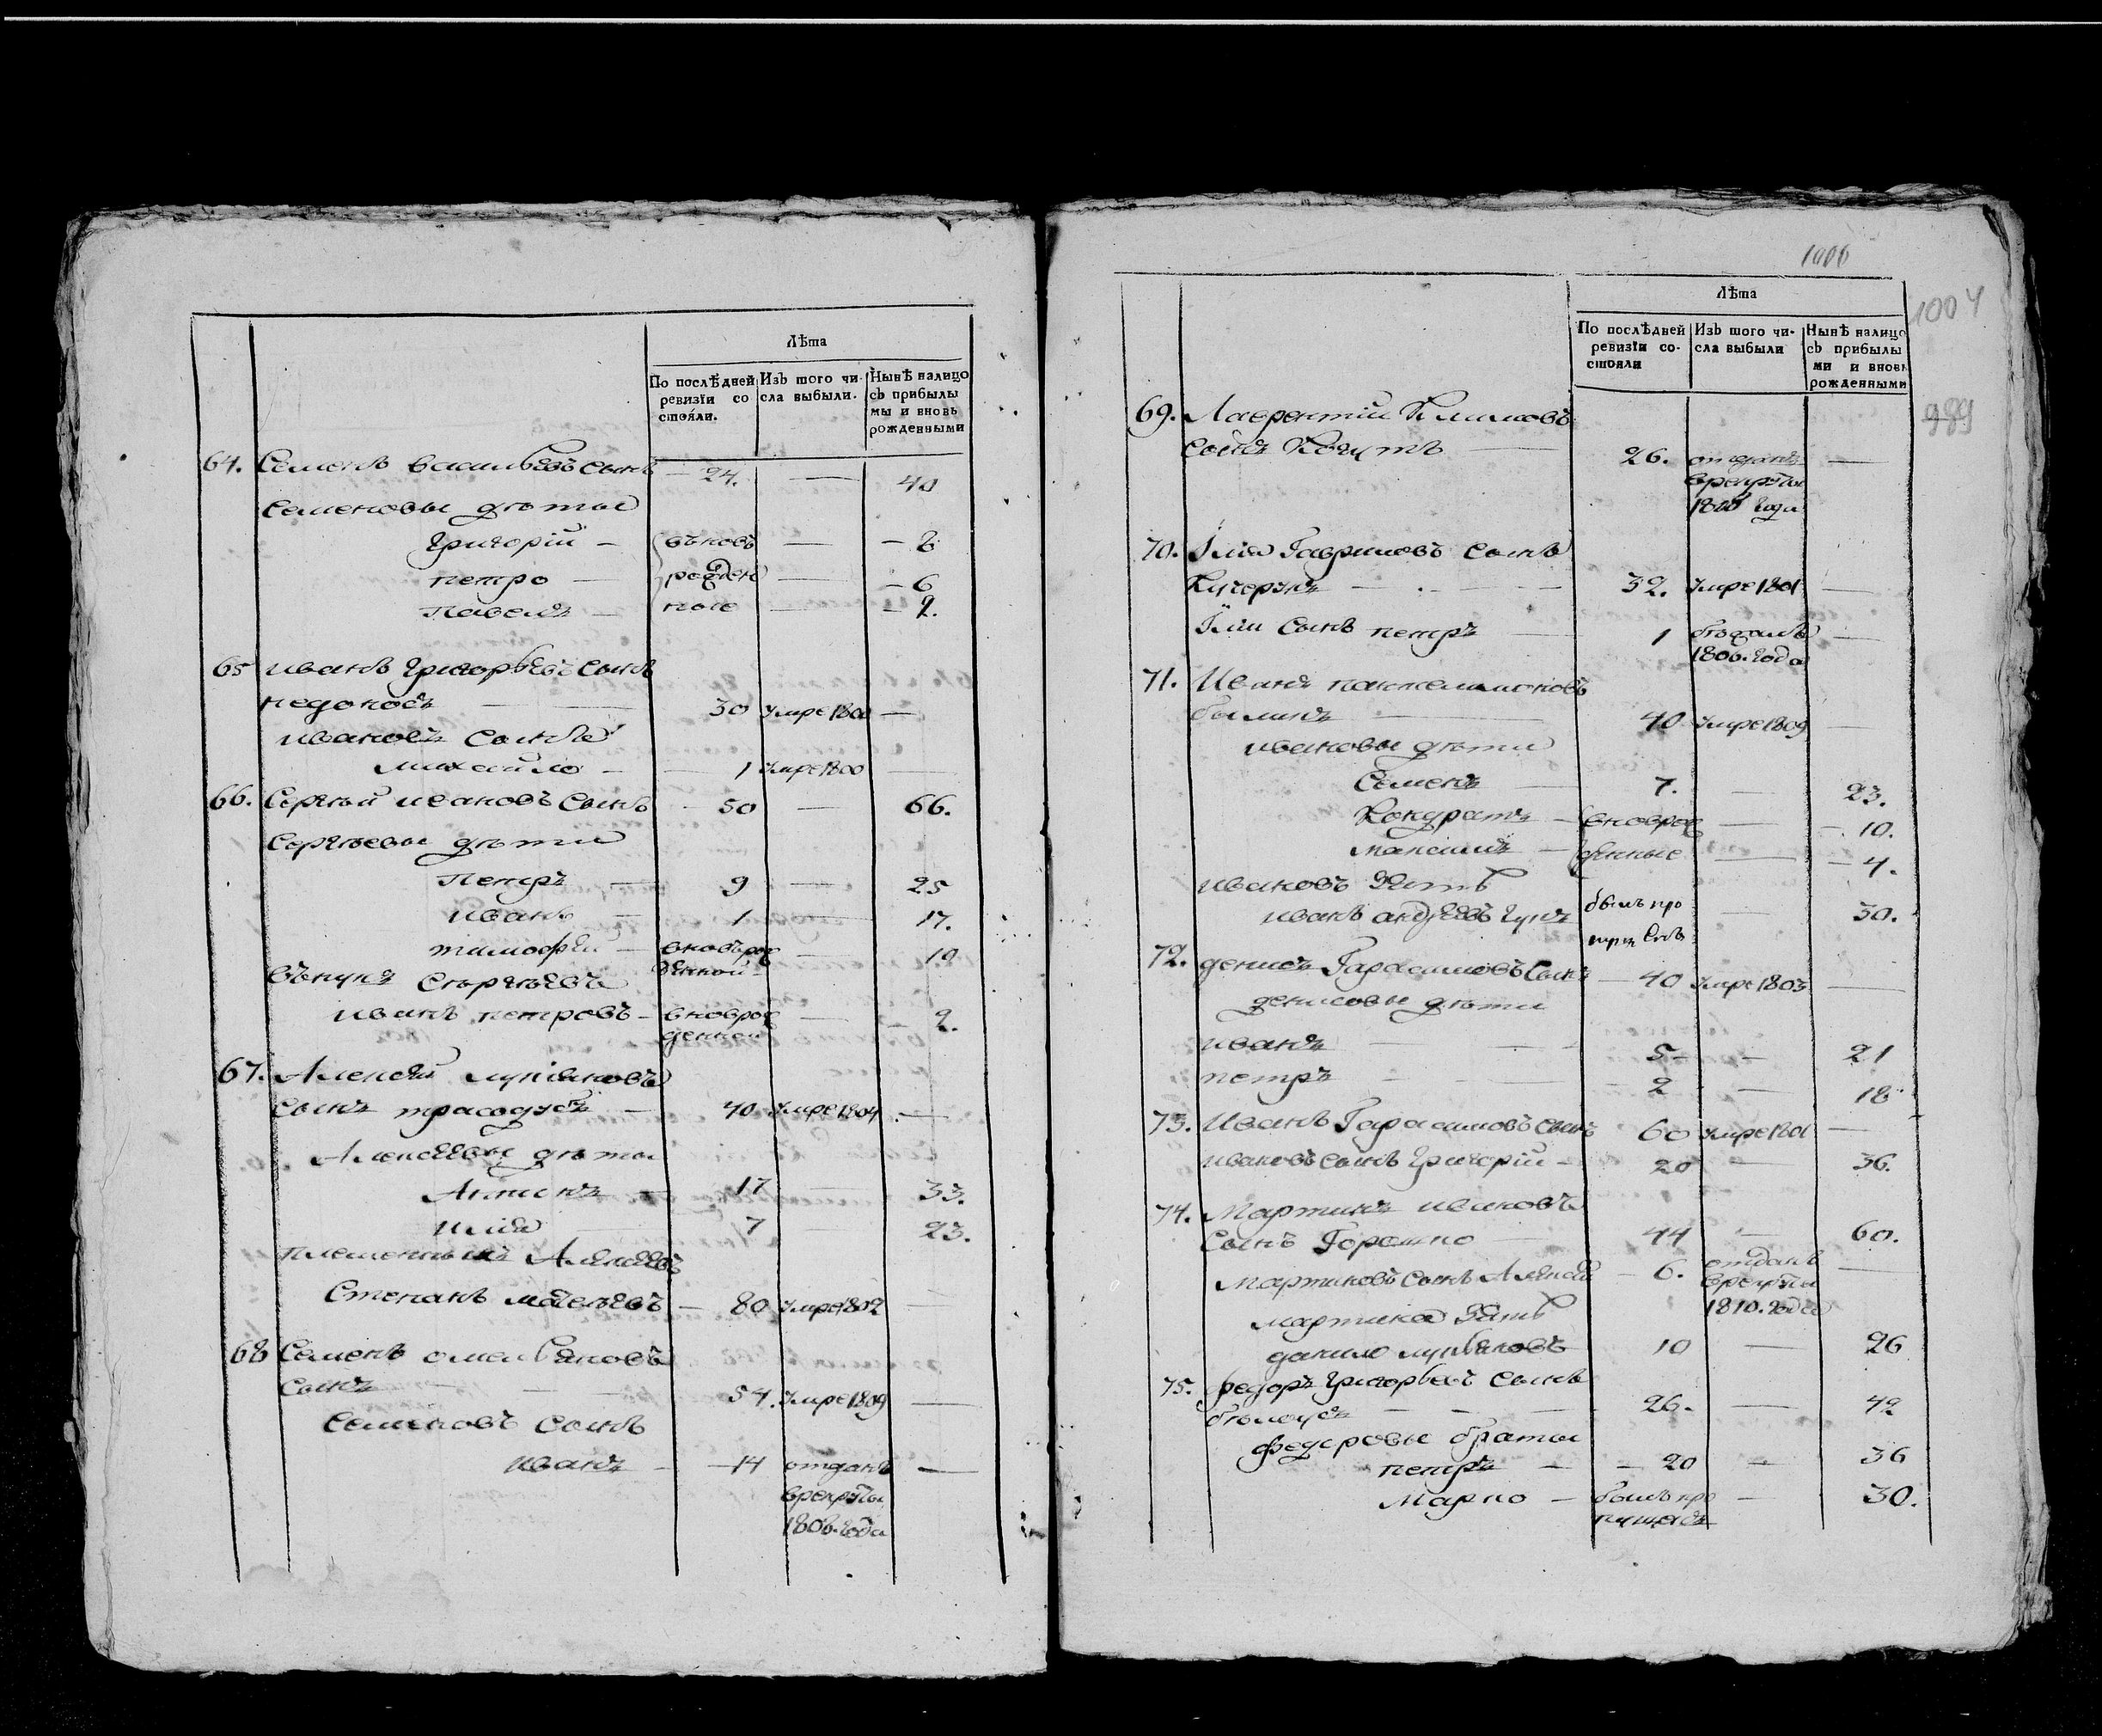 Лѣта
По послѣдней ревизїи со стояли.
Изъ того чи- сла выбыли.
Нынѣ налицо съ прибылы мы и вновь рожденными
64. Семенъ васильевъ сынъ — 24. — 40
Семеновы дѣты
Григорій — вънов — — 8
петро — рожден — — 6
Павелъ — ные — — 2.
65 иванъ Григорьевъ сынъ
недоносъ — 30 Умре 1800 —
ивановъ сынъ
михайло — 1 Умре 1800 —
66. Сергѣй ивановъ сынъ — 50 — 66.
Сергѣевы дѣти
Петръ — 9 — 25
иванъ — 1 — 17.
тимофѣй — вновьрож денной — 10
внукъ Сергѣевъ
иванъ петровъ — вноврож денной — 2.
67. Алексѣй лукіяновъ
сынъ — 40 Умре 1804 —
Алексѣевы дѣты
Антонъ — 17 — 33.
илія 7 — 23.
племенникъ Алексѣевъ
Степанъ — 80 Умре 1802 —
68 Семенъ омельяновъ
сынъ — 54. Умре 1809 —
Семеновъ сынъ
иванъ — 14 отданъ —
врекруты
1806. года
1006
1004
989
Лѣта
По послѣдней ревизїи со- стояли
Изъ того чи- сла выбыли
Нынѣ налицо съ прибылы ми и вновь рожденными
69. Лаврентій Климовъ
сынъ Когутъ — 26. отданъ —
врекруты
года
70. Илія Гавриловъ сынъ
— 32. Умре 1801 —
Иліи сынъ петръ — 1 бѣжалъ —
1806. года
71. Иванъ пантелимоновъ
былимъ — 40 Умре 1809 —
ивановы дѣти
Семенъ — 7. — 23.
Кондратъ — вноврож — — 10.
максимъ — денные — — 4.
ивановъ Зять
иванъ андрѣевъ былъ про — 30.
72. денисъ Гарасимовъ сынъ — 40 Умре 1803 —
денисовы дѣти
иванъ — 5 — 21
петръ — 2 — 18
73. Иванъ Гарасимовъ сынъ 60 Умре 1801 —
ивановъ сынъ Григорій — 20 — 36.
74. Мартинъ ивановъ
сынъ — 44 — 60.
мартиновъ сынъ Алексѣй — 6. отданъ —
врекруты
1810. года
мартина Зять
данило лукьяновъ 10 — 26
75. федоръ Григорьевъ сынъ
бѣлоусъ — 26. — 42
федоровы браты
петръ — 20 — 36
Марко — былъ про — 30.
пущенъ